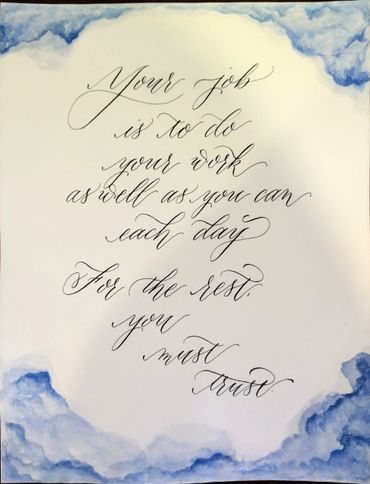 Your job
is to do
your work
as well as you can
each day
For the rest,
you
must
trust.